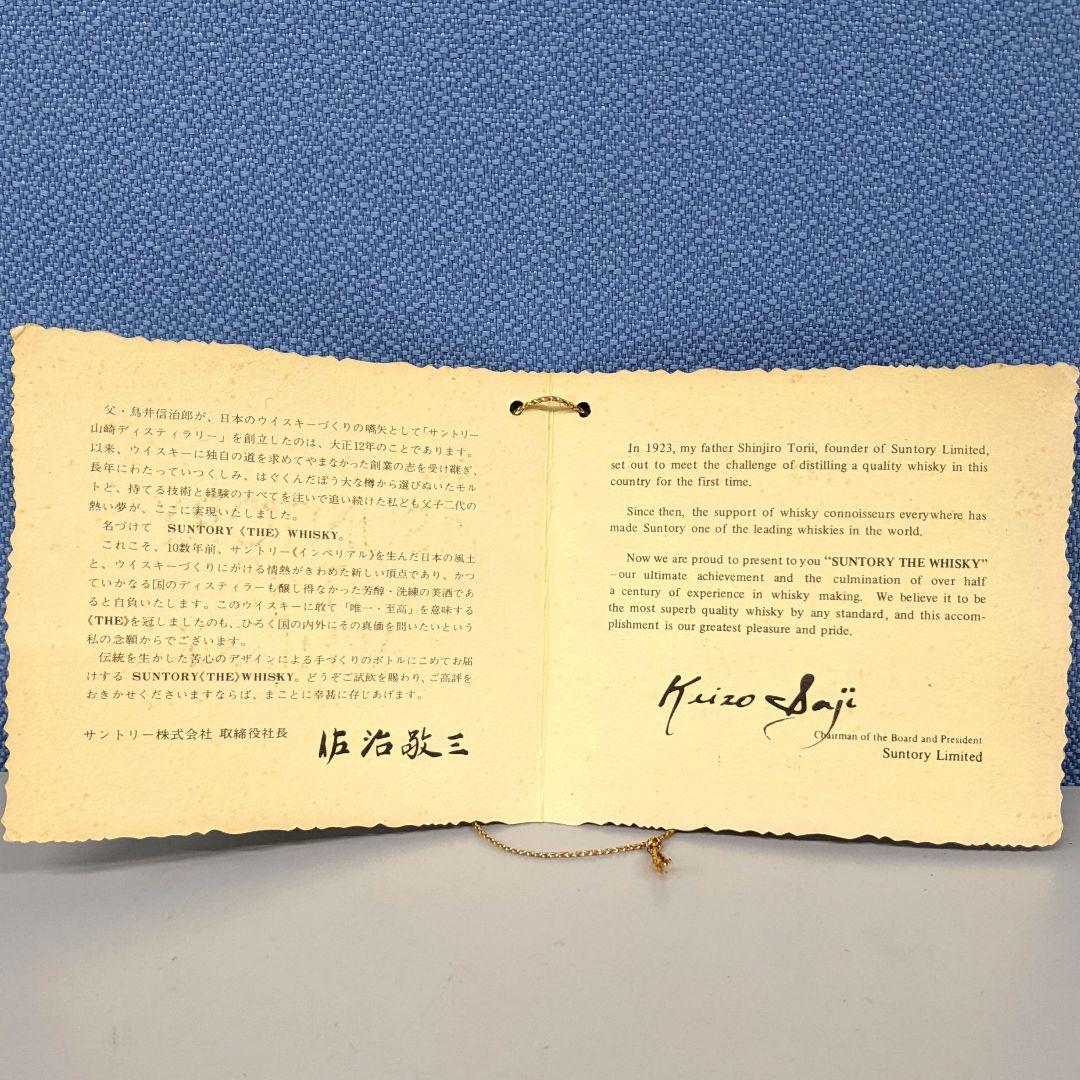 父・鳥井信治郎が、日本のウイスキーづくりの嚆矢として「サントリー
山崎ディスティラリー」を創立したのは、大正12年のことであります。
以来、ウイスキーに独自の道を求めてやまなかった創業の志を受け継ぎ、
長年にわたっていつくしみ、はぐくんだぼう大な樽から選びぬいたモル
トと、持てる技術と経験のすべてを注いで追い続けた私ども父子二代の
熱い夢が、ここに実現いたしました。
名づけて SUNTORY《THE》WHISKY。
これこそ、10数年前、サントリー《インペリアル》を生んだ日本の風土
と、ウイスキーづくりにがける情熱がきわめた新しい頂点であり、かつ
ていかなる国のディスティラーも醸し得なかった芳醇・洗練の美酒であ
ると自負いたします。このウイスキーに敢て「唯一・至高」を意味する
《THE》を冠しましたのも、ひろく国の内外にその真価を問いたいという
私の念願からでございます。
伝統を生かした苦心のデザインによる手づくりのボトルにこめてお届
けする SUNTORY《THE》WHISKY。どうぞご試飲を賜わり、ご高評を
おきかせくださいますならば、まことに幸甚に存じあげます。
サントリー株式会社 取締役社長 佐治敬三
In 1923, my father Shinjiro Torii, founder of Suntory Limited,
set out to meet the challenge of distilling a quality whisky in this
country for the first time.
Since then, the support of whisky connoisseurs everywhere has
made Suntory one of the leading whiskies in the world.
Now we are proud to present to you "SUNTORY THE WHISKY"
–our ultimate achievement and the culmination of over half
a century of experience in whisky making. We believe it to be
the most superb quality whisky by any standard, and this accom-
plishment is our greatest pleasure and pride.
Keizo Saji
Chairman of the Board and President
Suntory Limited